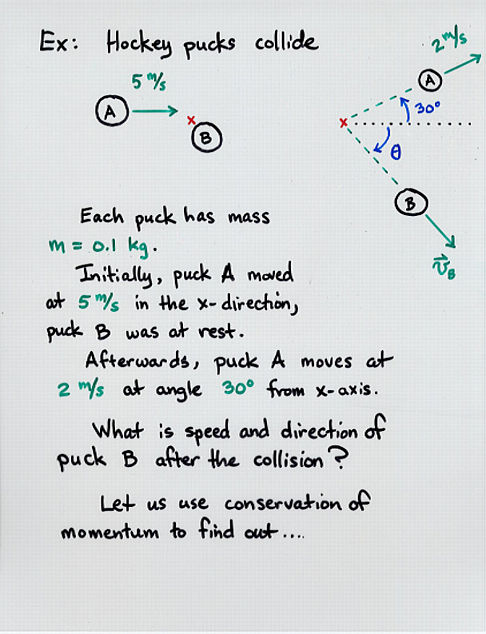 Ex: Hockey pucks collide
5 m/s
A
x
B
2 m/s
A
30°
x
θ
B
v⃗_B
Each puck has mass
m = 0.1 kg.
Initially, puck A moved
at 5 m/s in the x-direction,
puck B was at rest.
Afterwards, puck A moves at
2 m/s at angle 30° from x-axis.
What is speed and direction of
puck B after the collision?
Let us use conservation of
momentum to find out....